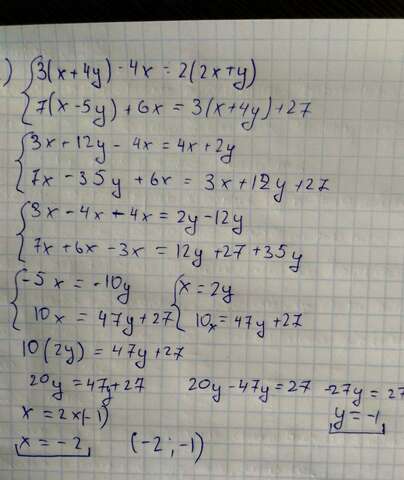 ) { 3(x + 4y) - 4x = 2(2x+y)
7(x - 5y) + 6x = 3(x+4y)+27
{ 3x + 12y - 4x = 4x + 2y
7x - 35y + 6x = 3x + 12y + 27
{ 3x - 4x - 4x = 2y - 12y
7x + 6x - 3x = 12y + 27 + 35y
{ -5x = -10y { x = 2y
10x = 47y + 27 10x = 47y + 27
10(2y) = 47y + 27
20y = 47y + 27 20y - 47y = 27 -27y = 27
x = 2×(-1) y = -1
x = -2 (-2; -1)